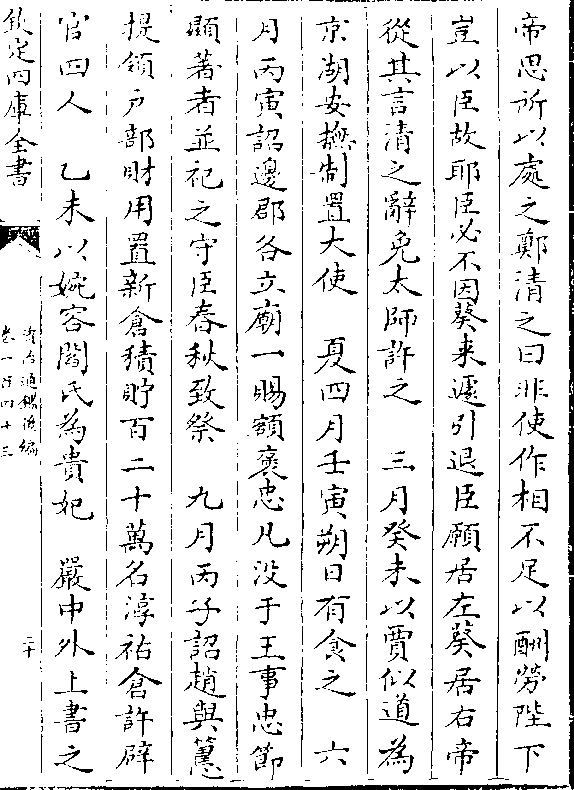 帝思所以處之鄭清之曰非使作相不足以酬勞陛下
豈以臣故耶臣必不因葵来遽引退臣願居左葵居右帝
從其言清之辭免太師許之　三月癸未以賈似道為
京湖安撫制置大使　夏四月壬寅朔日有食之　六
月丙寅詔邊郡各立廟一賜額褒忠凡没于王事忠節
顯著者並祀之守臣春秋致祭　九月丙子詔趙與𥲅
提領户部財用置新倉積貯百二十萬名淳祐倉許辟
官四人　乙未以婉容閻氏為貴妃　嚴中外上書之
欽定四庫全書
資治通鑑後編
卷一百四十三
二十